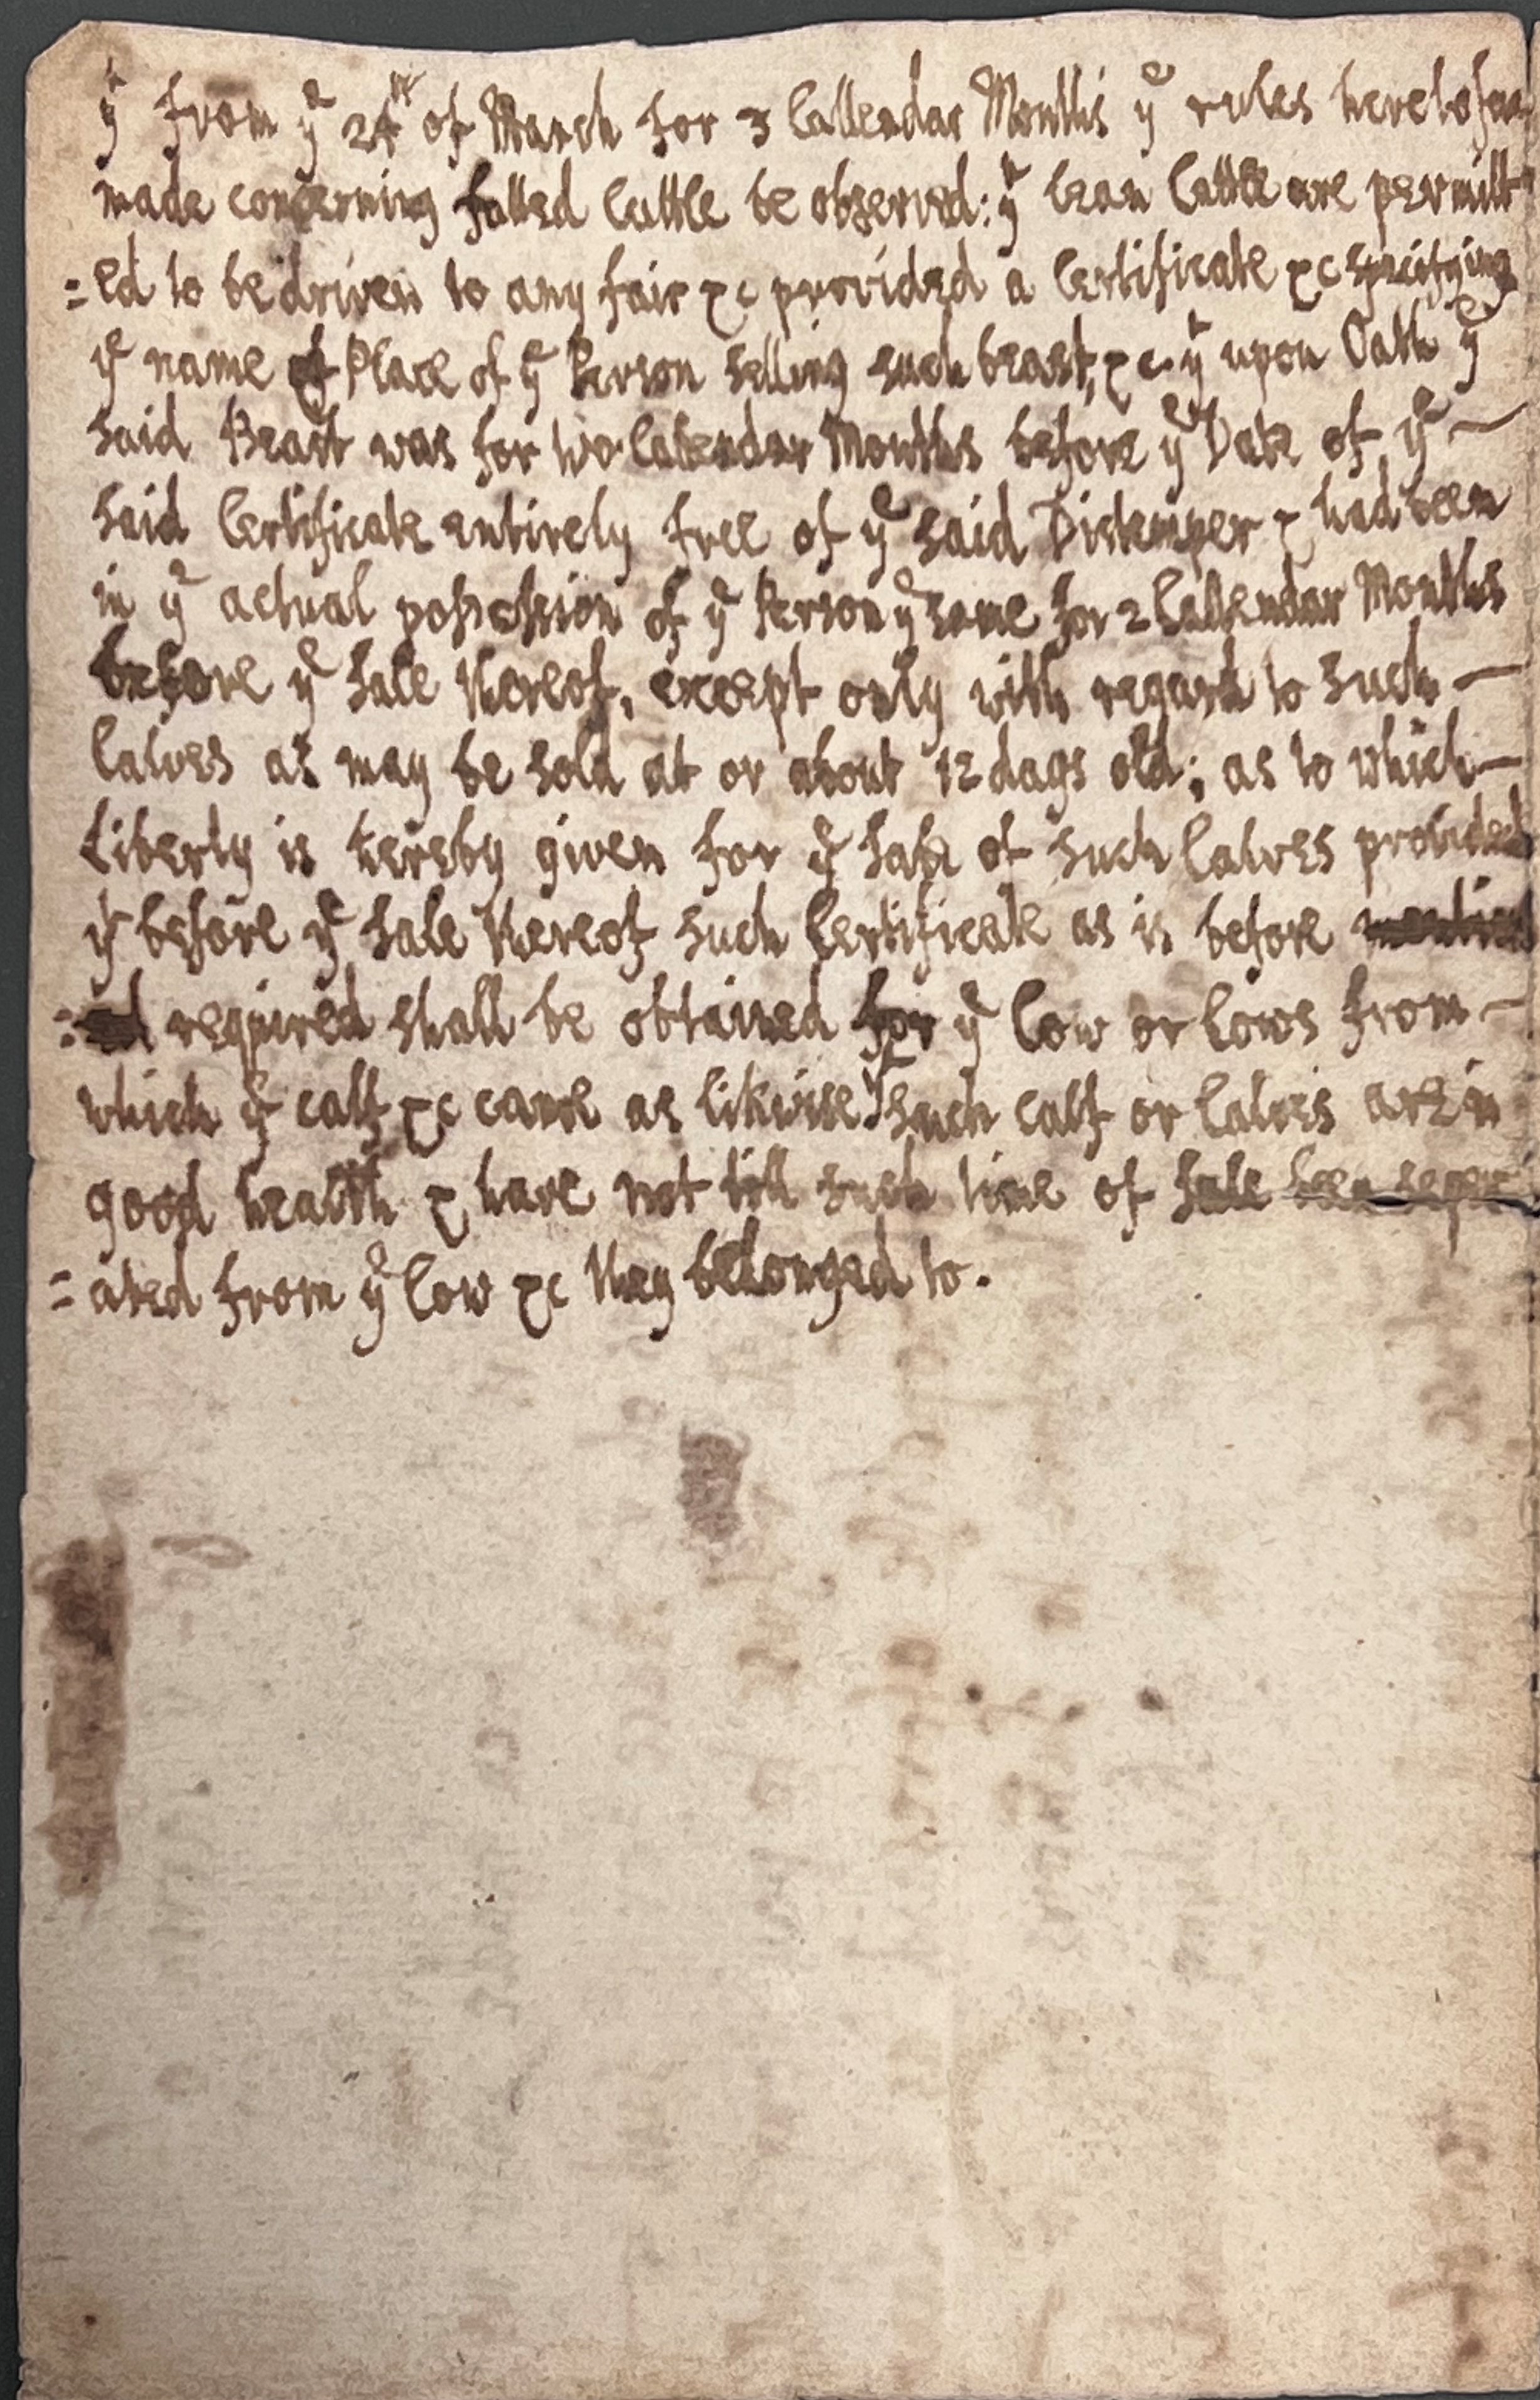 yᵗ from yᵉ 24ᵗʰ of March for 3 Callendar Months yᵉ rules heretofore
made concerning fatted Cattle be observed: yᵗ lean Cattle are permitt
=ed to be driven to any fair &c provided a Certificate &c specifying
yᵉ name of Place of yᵉ Person selling such beast, &c. yᵗ upon Oath yᵉ
said Beast was for two Callendar Months before yᵉ Date of yᵉ —
said Certificate entirely free of yᵉ said Distemper & had been
in yᵉ actual possession of yᵉ Person yᵉ same for 2 Callendar Months
before yᵉ sale thereof, except only with regard to such —
Calves as may be sold at or about 12 days old; as to which —
Liberty is hereby given for yᵉ Sale of such Calves provided
yᵗ before yᵉ Sale thereof such Certificate as is before mention
=ed required shall be obtained for yᵉ Cow or Cows from —
which yᵉ calf &c came as likwise yᵗ such calf or Calves are in
good health & have not till such time of sale been seper
=ated from yᵉ Cow &c they belonged to.